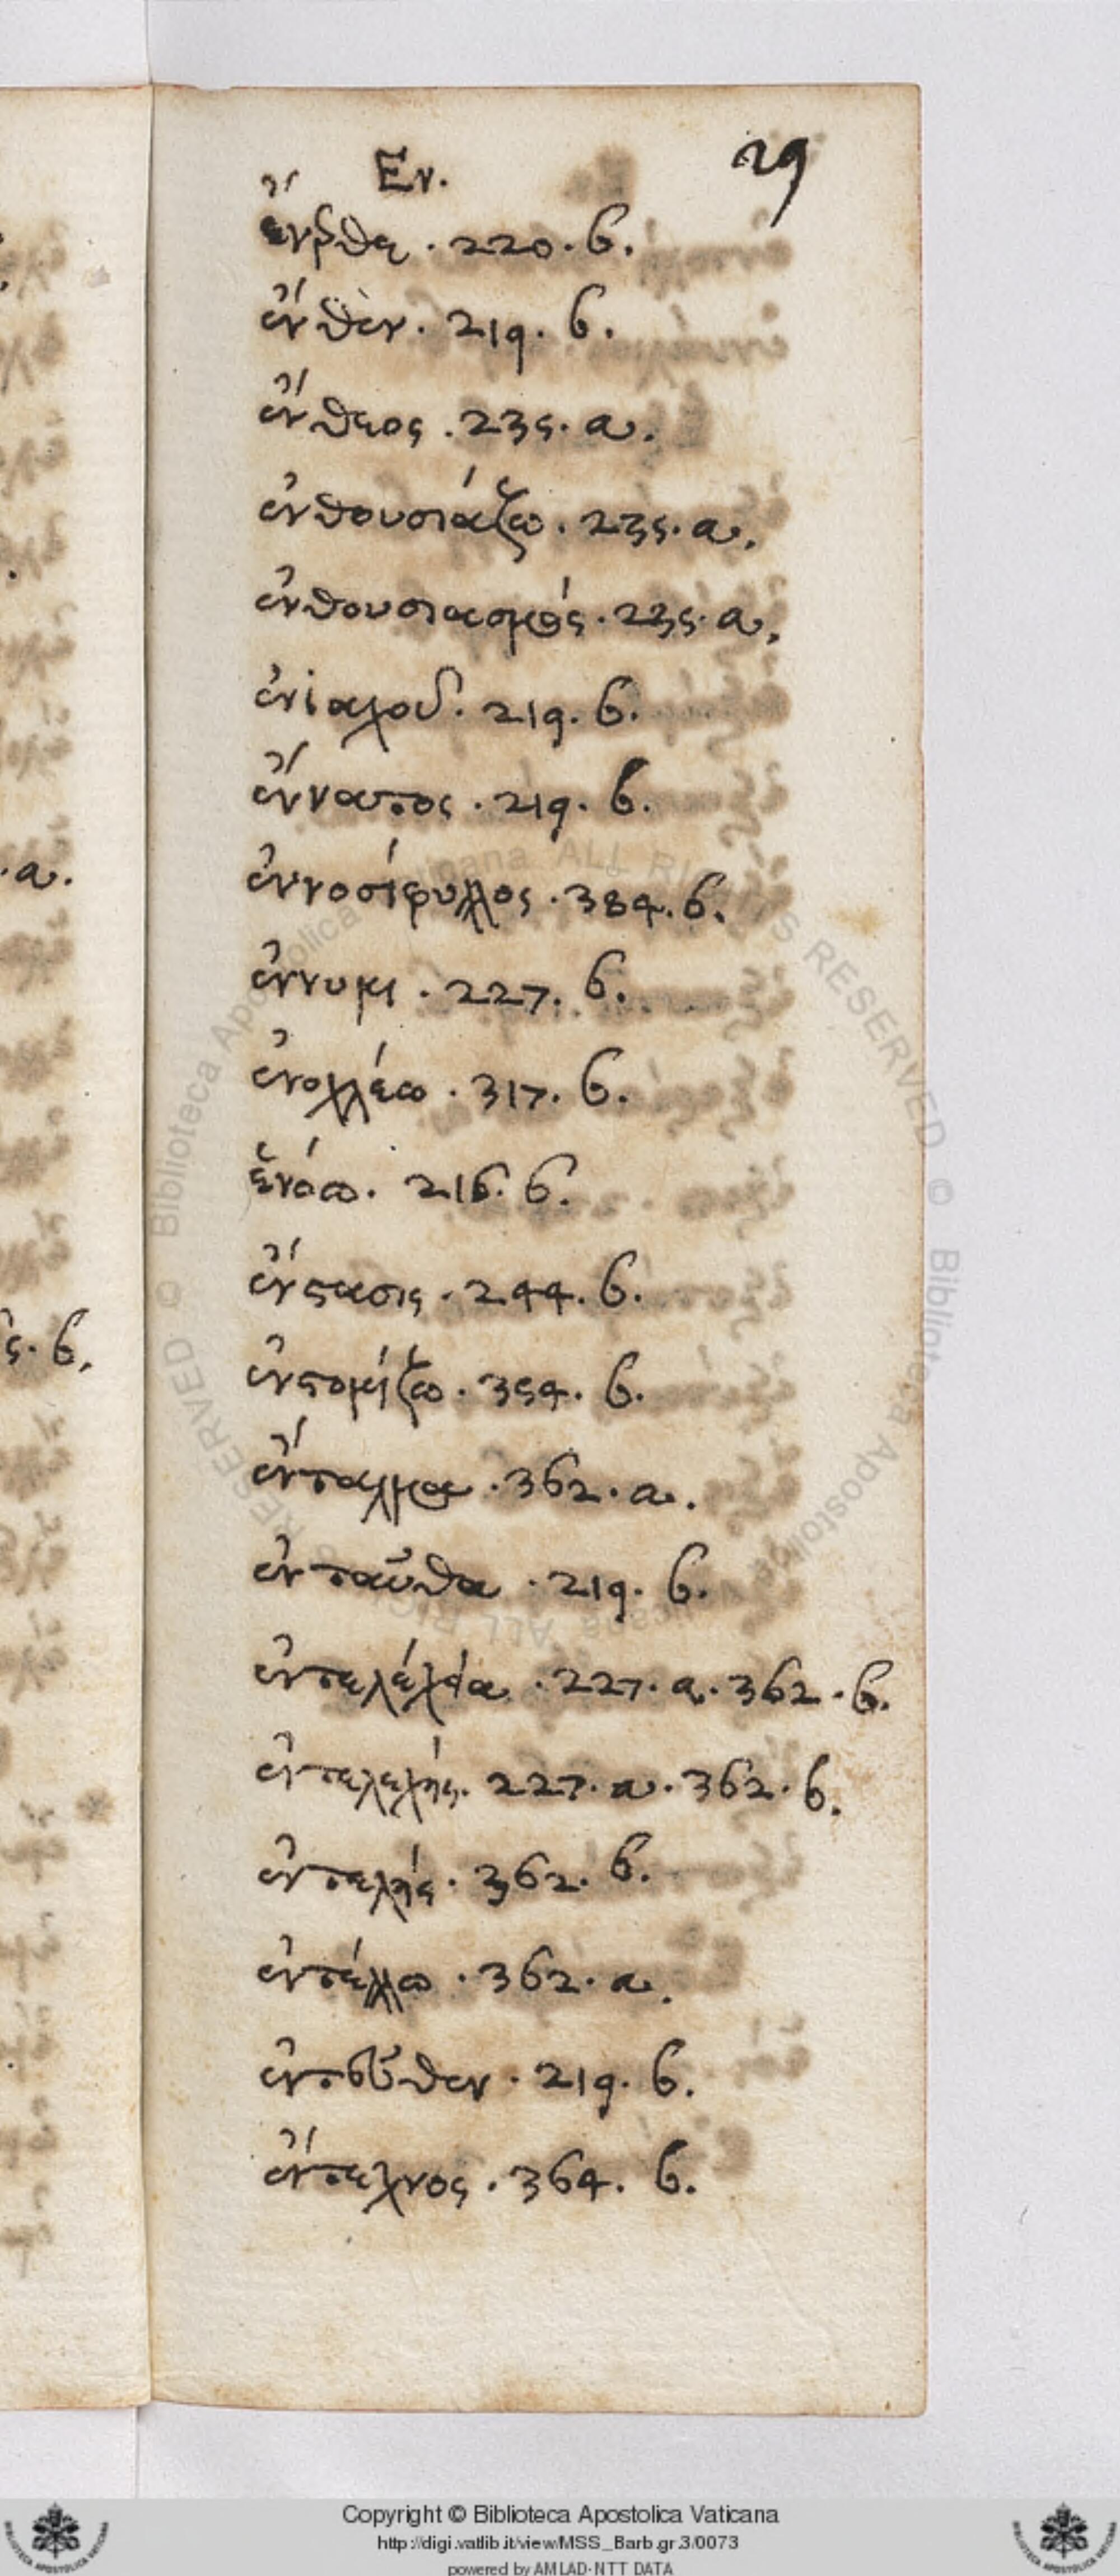 Εν. 29
ἔνερθε . 220 . b.
ἔνθεν . 219 . b.
ἔνθεος . 235 . a.
ἐνθουσιάζω . 235 . a.
ἐνθουσιασμός . 235 . a.
219 . b.
219 . b.
ἐννοσίφυλλος . 384 . b.
ἔννυμι . 227 . b.
317 . b.
ἑνόω . 216 . b.
ἔνστασις . 244 . b.
ἐνστομίζω . 354 . b.
ἔνταλμα . 362 . a.
ἐνταῦθα . 219 . b.
ἐντελέχεια . 227 . a . 362 . b.
ἐντελεχής . 227 . a . 362 . b.
ἐντελής . 362 . b.
ἐντέλλω . 362 . a.
ἐντεῦθεν . 219 . b.
ἔντεχνος . 364 . b.
. a.
ς . b.
Biblioteca Apostolica Vaticana ALL RIGHTS RESERVED ©
Copyright © Biblioteca Apostolica Vaticana
http://digi.vatlib.it/view/MSS_Barb.gr.3/0073
powered by AMLAD-NTT DATA